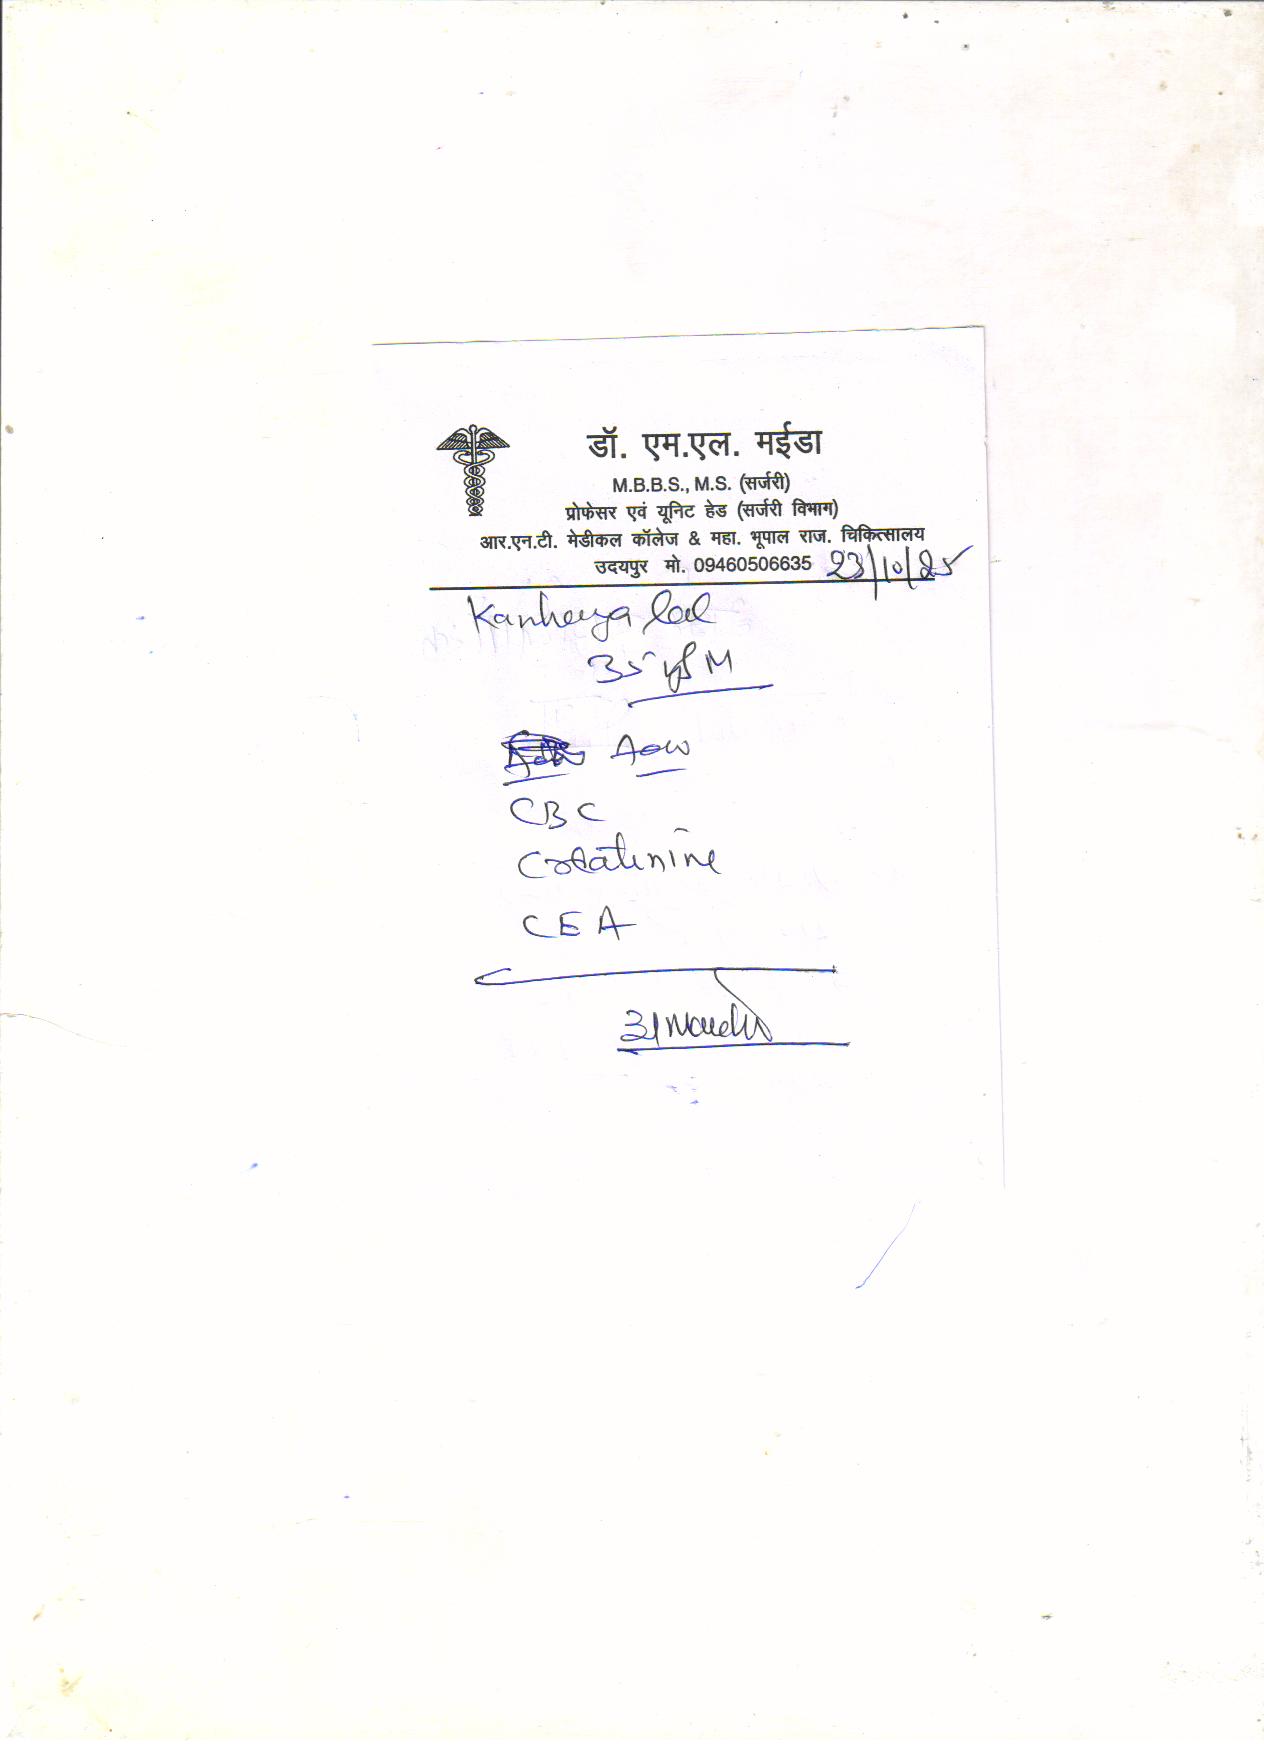 डॉ. एम.एल. मईडा
M.B.B.S., M.S. (सर्जरी)
प्रोफेसर एवं यूनिट हेड (सर्जरी विभाग)
आर.एन.टी. मेडीकल कॉलेज & महा. भूपाल राज. चिकित्सालय
उदयपुर मो. 09460506635 23/10/25
Kanheya lal
35 yrs M
CBC
Creatinine
CEA